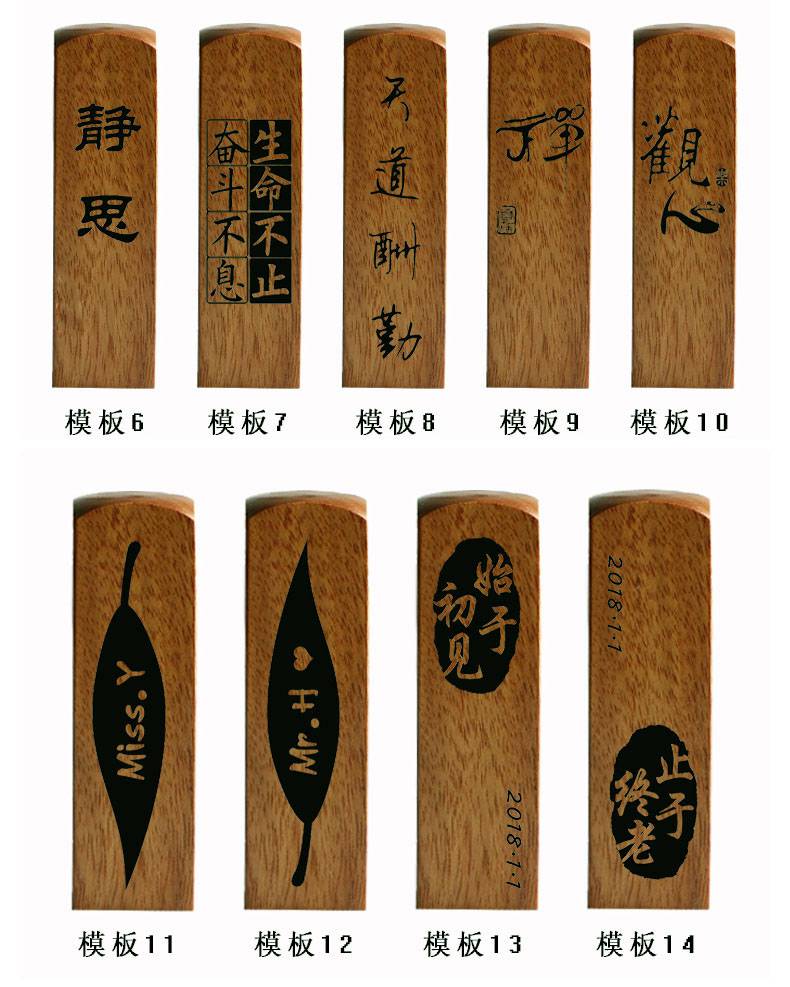 静思
生命不止
奋斗不息
天道酬勤
禅
觀心
模板6
模板7
模板8
模板9
模板10
Miss.Y
Mr.H
始于
初见
2018·1·1
2018·1·1
止于
终老
模板11
模板12
模板13
模板14